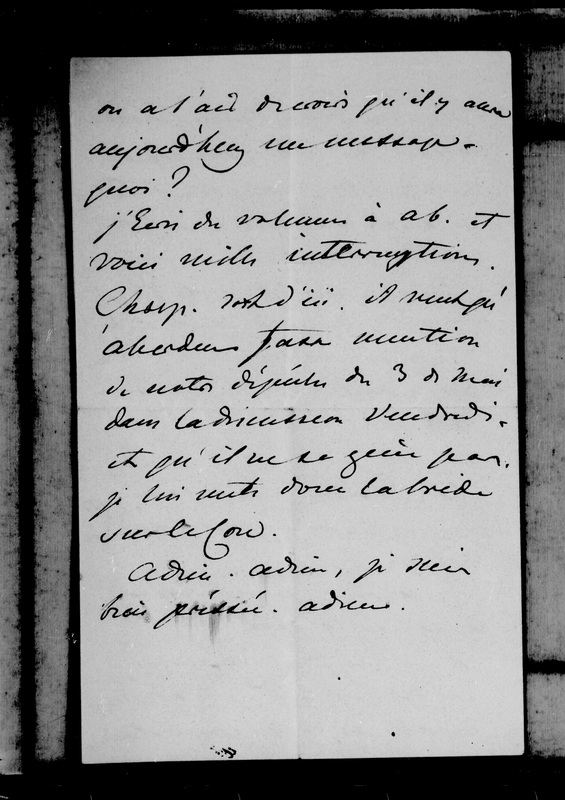 on a l'air de croire qu'il y aura
aujourd'huy un message.
quoi ?
j'écris des volumes à Ab. et
voici mille interruptions.
Chap. sort d'ici. il veut qu'
aberdeen fasse mention
de notre dépêche du 3 de Mai
dans la discussion Vendredi.
et qu'il ne se gêne pas.
je lui mets donc la bride
sur le Cou.
Adieu. adieu, je suis
bien pressée. adieu.